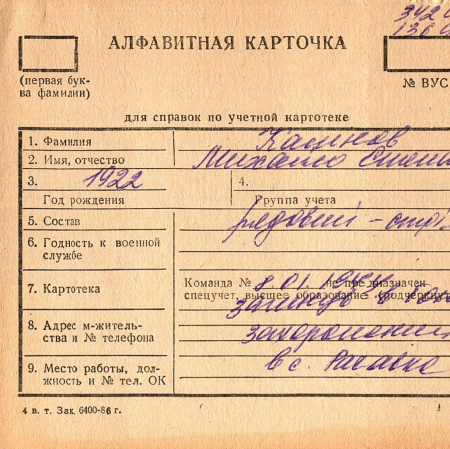 342
136
АЛФАВИТНАЯ КАРТОЧКА
(первая бук-
ва фамилии)
№ ВУС
для справок по учетной картотеке
1. Фамилия
2. Имя, отчество Михайло
3. 1922
Год рождения
4.
Группа учета
5. Состав рядовий - стрі
6. Годность к военной
службе
7. Картотека
Команда № 8.01.1944 не предназначен
спецучет, высшее образование (подчеркну
загинув в
8. Адрес м-житель-
ства и № телефона
9. Место работы, дол-
жность и № тел. ОК
в с.
4 в. т. Зак. 6400-86 г.